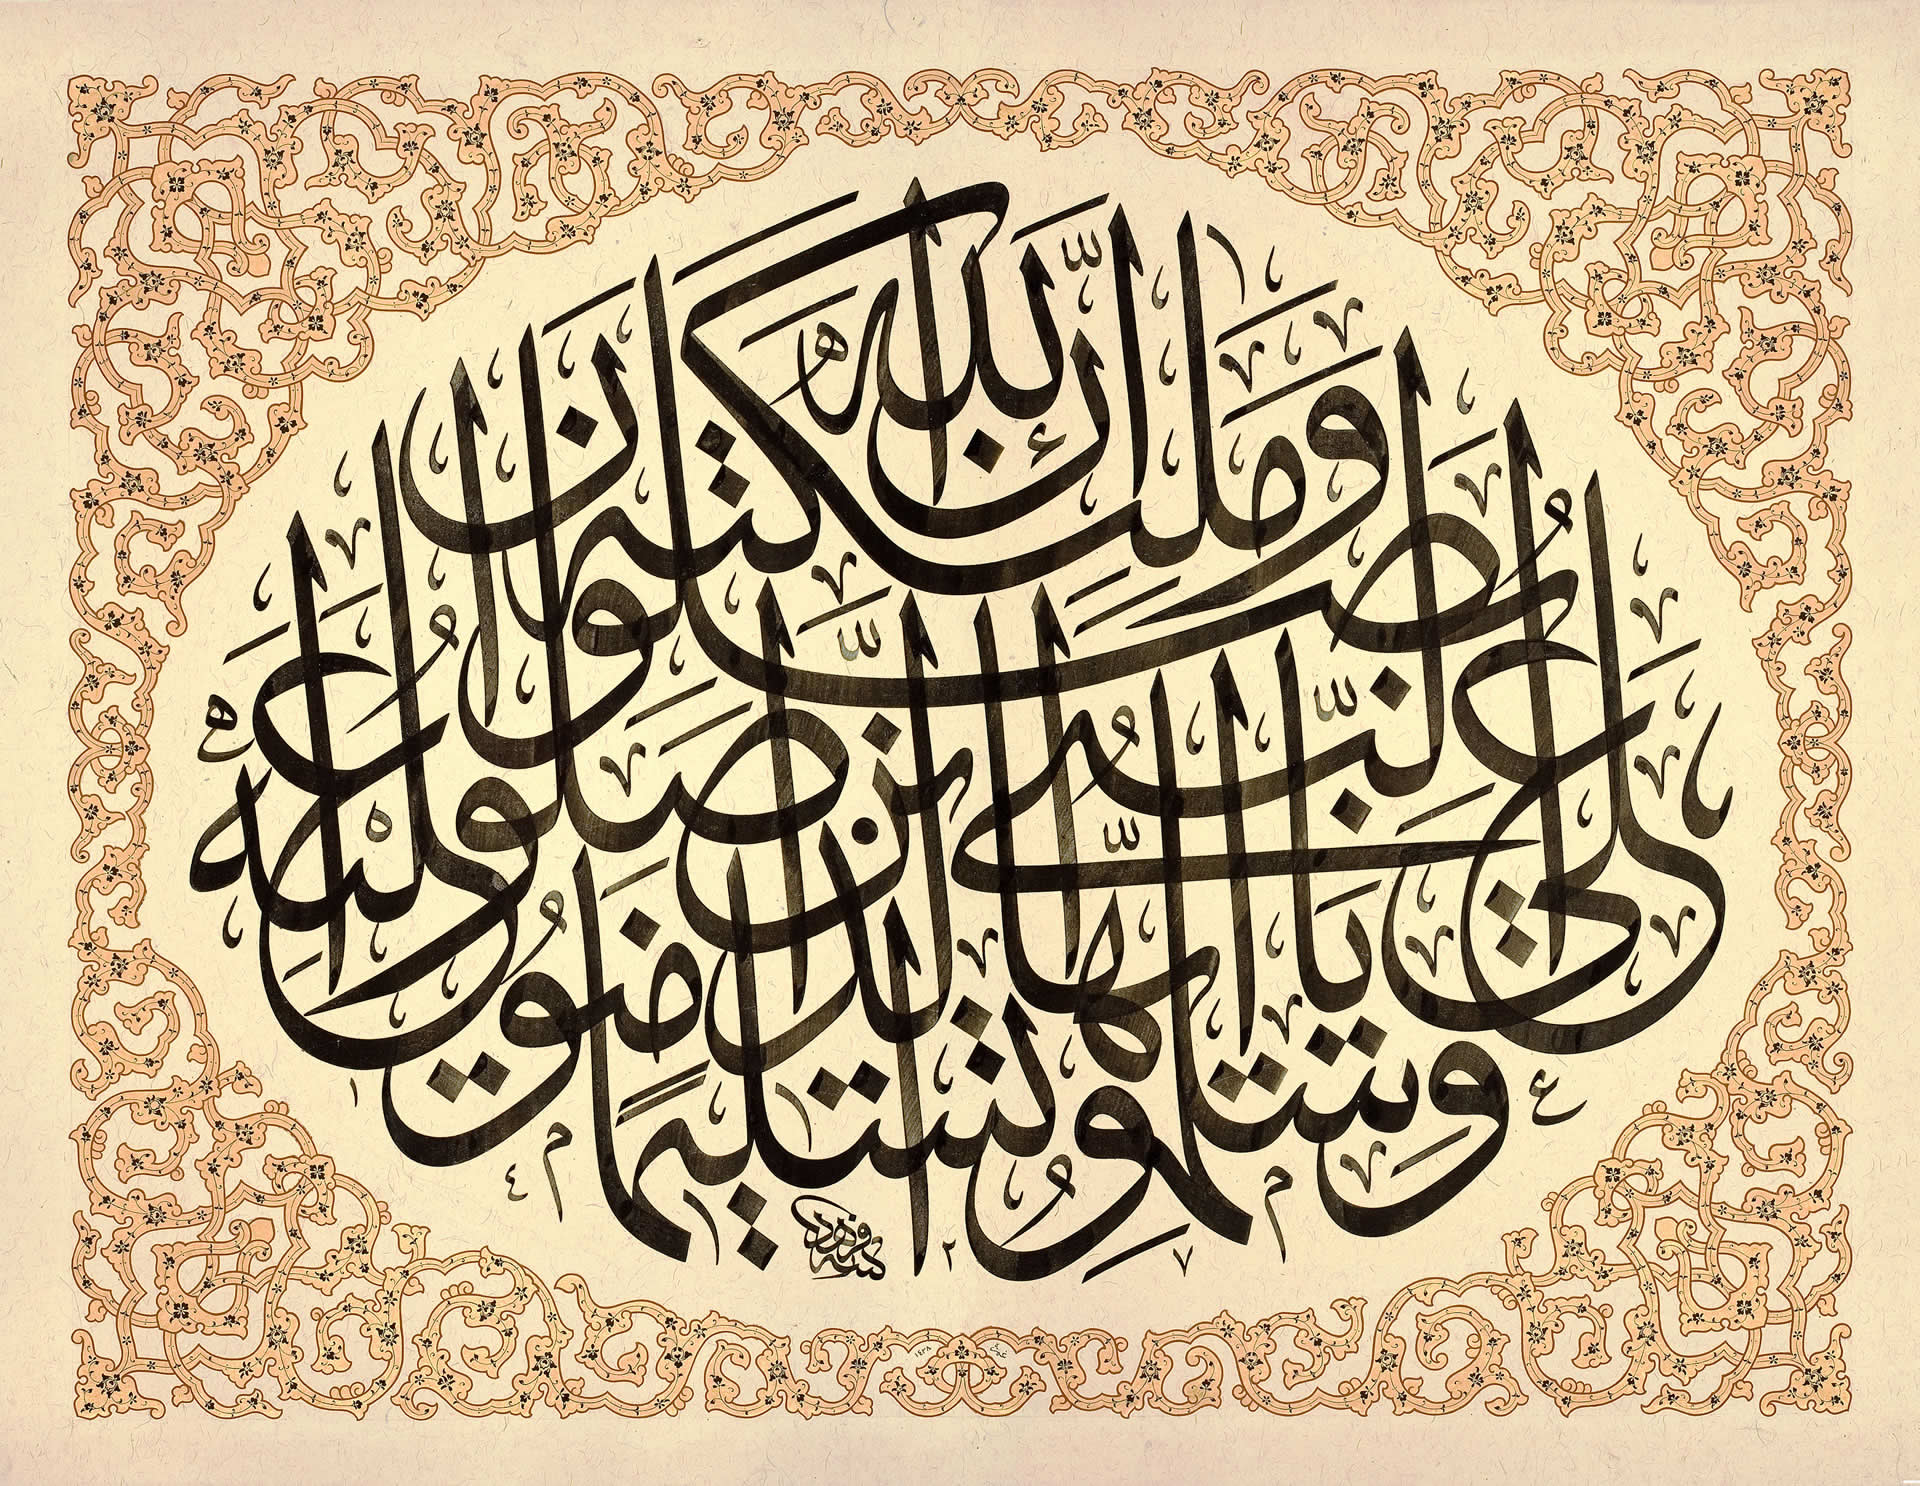 إن الله وملئكته يصلون على النبي يا أيها الذين آمنوا صلوا عليه وسلموا تسليما
كتبه فرهاد
١٤٢٧
١٤٣٨